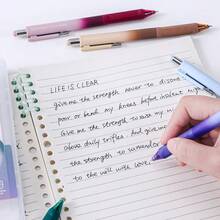 LIFE IS CLEAR
give me the strength never to disow
poor or bend my knees before insolent might
Give me the strength to raise my
above daily trifles. And give me
the strength to surrender
to the will with love